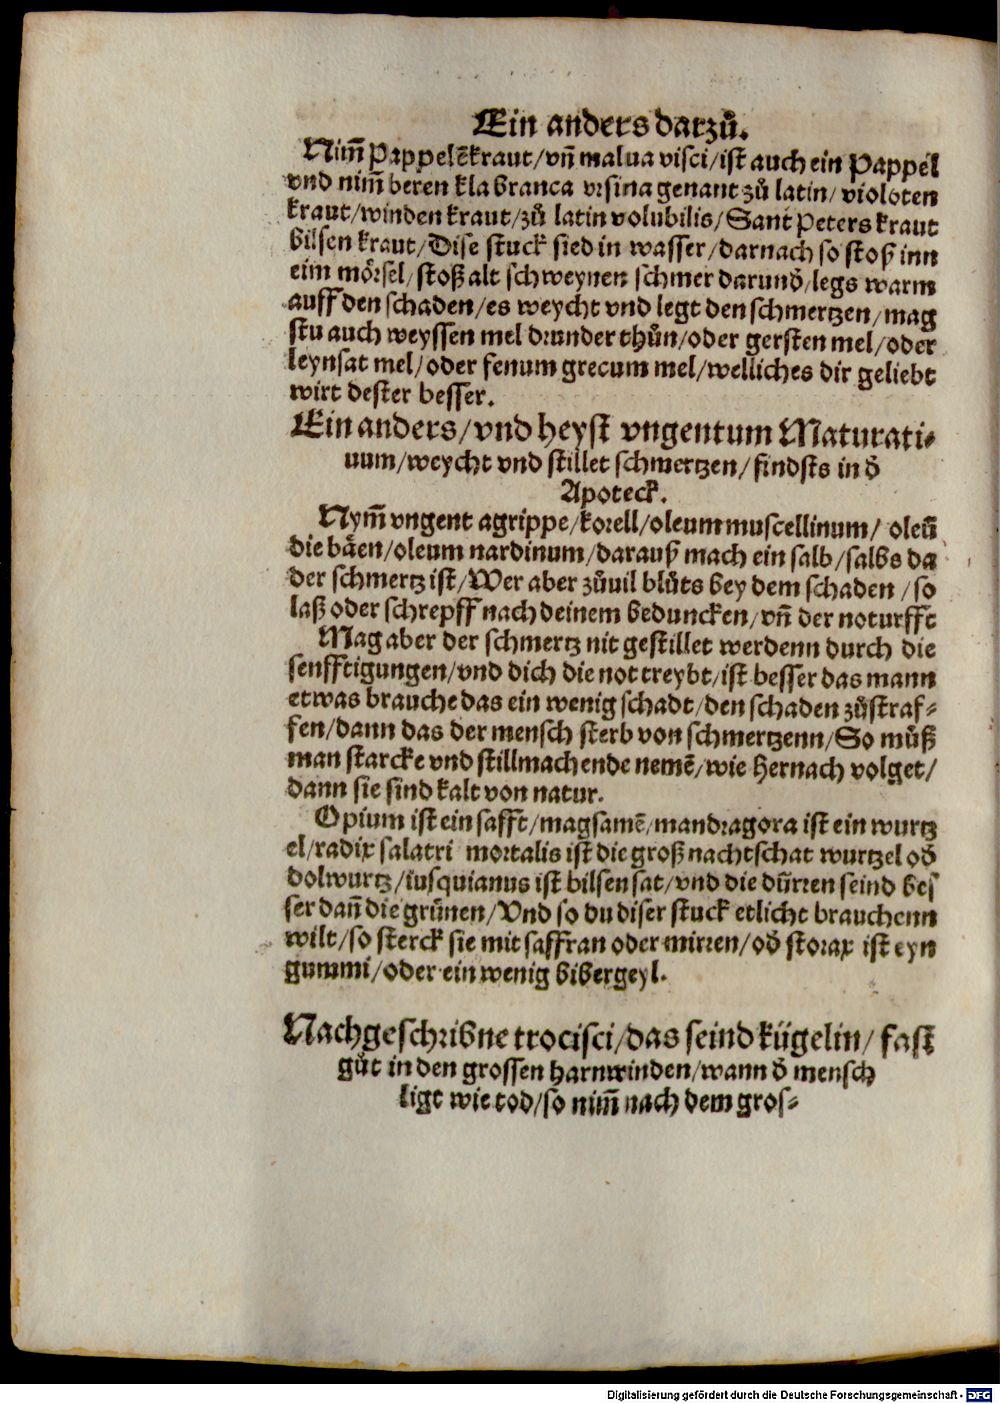 Ein anders darzů.
Nim̃ Pappelẽkraut/vn̄ malua visci/ist auch ein Pappel
vnd nim̃ beren kla branca vrsina genant zů latin/violoten
kraut/winden kraut/zů latin volubilis/Sant Peters kraut
bilsen kraut/Dise stuck sied in wasser/darnach so stoß inn
eim mörsel/stoß alt schweynen schmer darund̕/legs warm
auff den schaden/es weycht vnd legt den schmertzen/mag
stu auch weyssen mel drunder thůn/oder gersten mel/oder
leynsat mel/oder fenum grecum mel/welliches dir geliebt
wirt dester besser.
Ein anders/vnd heyst vngentum Maturati⸗
uum/weycht vnd stillet schmertzen/findsts in d̕
Apoteck.
Nym̃ vngent agrippe/korell/oleum muscellinum/ oleū
die bäen/oleum nardinum/darauß mach ein salb/salbs da
der schmertz ist/Wer aber zůuil blůts bey dem schaden /so
laß oder schrepff nach deinem beduncken/vn̄ der noturfft
Mag aber der schmertz nit gestillet werdenn durch die
senfftigungen/vnd dich die not treybt/ist besser das mann
etwas brauche das ein wenig schadt/den schaden zůstraf⸗
fen/dann das der mensch sterb von schmertzenn/So můß
man starcke vnd stillmachende nemẽ/wie hernach volget/
dann sie sind kalt von natur.
Opium ist ein safft/magsamẽ/mandragora ist ein wurtz
el/radix salatri mortalis ist die groß nachtschat wurtzel od̕
dolwurtz/iusquianus ist bilsen sat/vnd die dürren seind bes
ser dañ die grünen/Vnd so du diser stuck etlicht brauchenn
wilt/so sterck sie mit saffran oder mirren/od̕ storax ist eyn
gummi/oder ein wenig bibergeyl.
Nachgeschribne trocisci/das seind kügelin/ fast
gůt in den grossen harnwinden/wann d̕ mensch
ligt wie tod/so nim̃ nach dem gros⸗
Digitalisierung gefördert durch die Deutsche Forschungsgemeinschaft - DFG